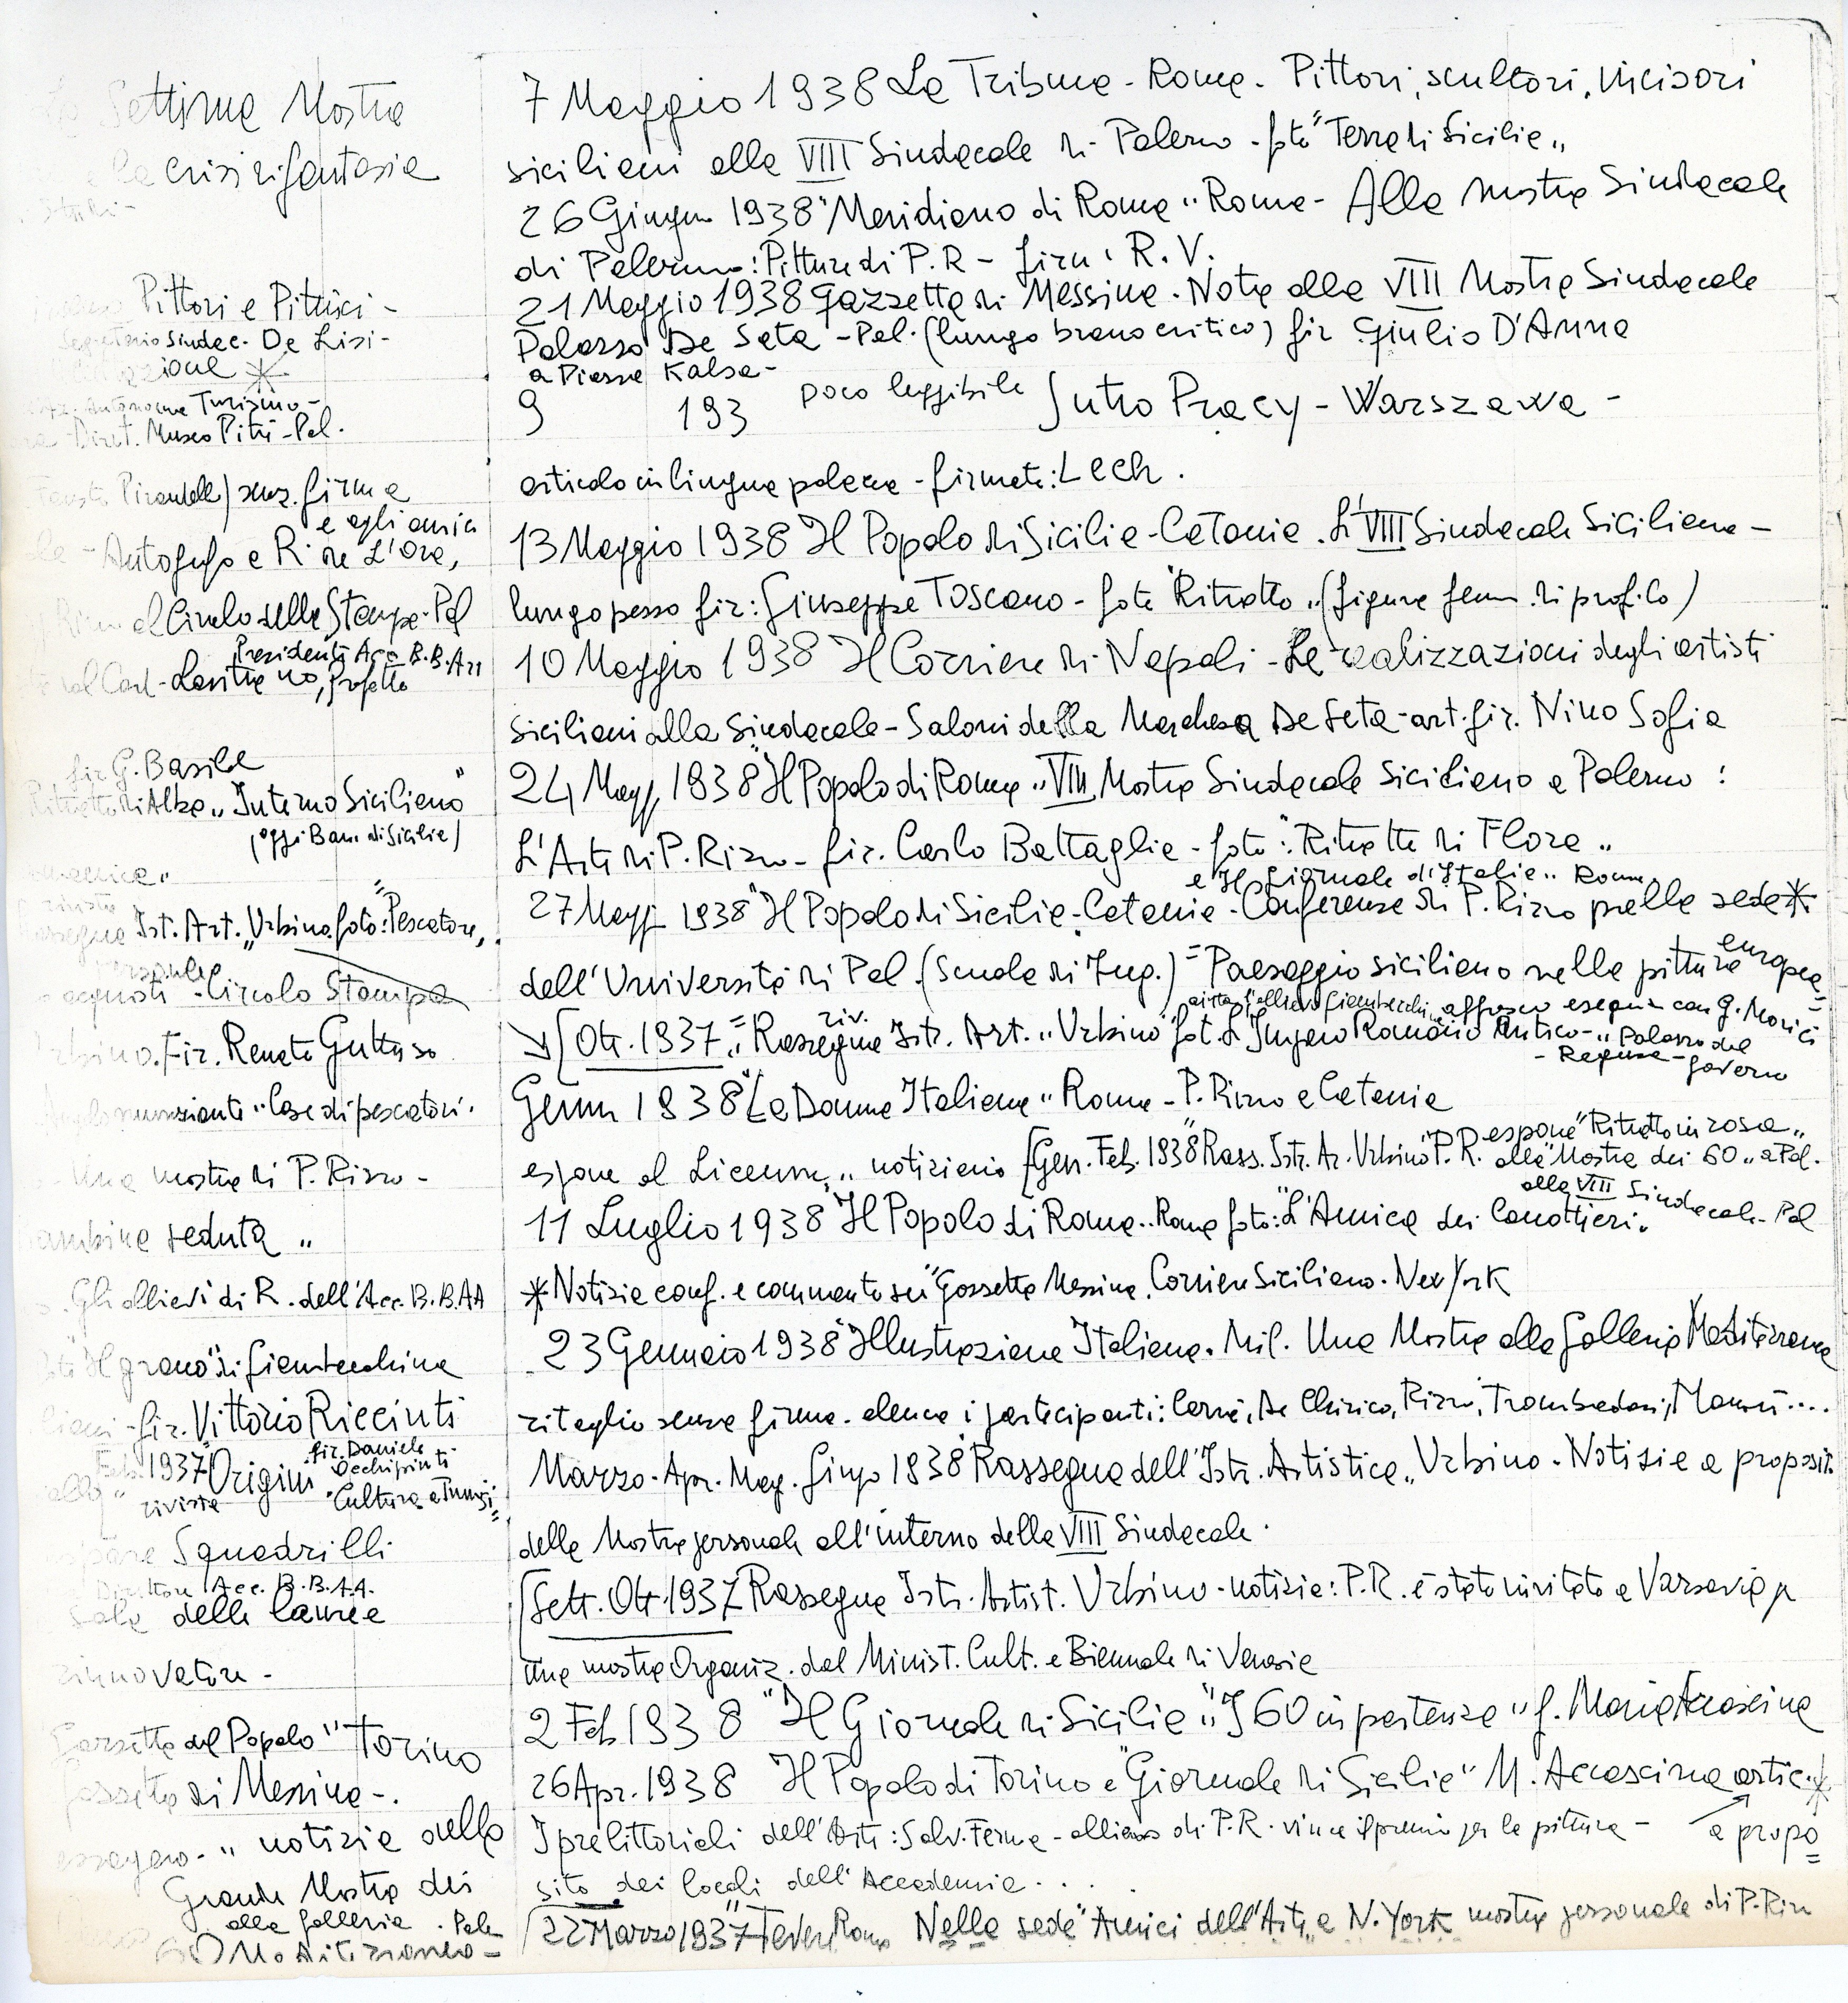 Settima Mostra
e la crisi di fantasia
Pittori e Pittrici -
Sindac. De Lisi -
Autonoma Turismo -
Diret. Museo Pitrè - Pal.
Pirandello) senz. firma
e agli amici
Autogufo e R. ne L'Ora,
al Circolo della Stampa - Pal
Presidente Acc. B.B. Arti
Card. Lavitrano, Prefetto
fir G. Basile
Ritratto di Alba „ Interno Siciliano"
(oggi Banc. di Sicilia)
Ist. Art. „ Urbino. foto: "Pescatore„
Circolo Stampa
fir. Renato Guttuso
"Case di pescatori.
Una mostra di P. Rizzo -
seduta „
Gli allievi di R. dell'Acc. B.B.AA
"Il grano" di Giambecchina
fir. Vittorio Ricciuti
1937 "Origini fir. Daniele Occhipinti
rivista Cultura e Tunisi
Squadrilli
Direttore Acc. B.B.A.A.
Sala delle lauree
rinnovatore -
Gazzetta del Popolo" Torino
Gazzetta di Messina -.
„ notizie della
Grande Mostra dei
alla Galleria
60 Mediterraneo -
7 Maggio 1938 La Tribuna - Roma - Pittori, scultori, incisori
siciliani alla VIII Sindacale di Palermo - foto "Terra di Sicilia„
26 Giugno 1938 "Meridiano di Roma" Roma - Alla mostra Sindacale
di Palermo: Pitture di P.R - firm: R.V.
21 Maggio 1938 Gazzetta di Messina. Nota alla VIII Mostra Sindacale
Palazzo De Seta - Pal. (lungo brano critico) fir Giulio D'Anna
a Piazza Kalsa -
9 193 poco leggibile Jutro Pracy - Warszawa -
articolo in lingua polacca - firmato: Lech.
13 Maggio 1938 Il Popolo di Sicilia - Catania. L'VIII Sindacale Siciliana -
lungo pezzo fir: Giuseppe Toscano - foto "Ritratto„ (figura femm. di profilo)
10 Maggio 1938 Il Corriere di Napoli - Le realizzazioni degli artisti
siciliani alla Sindacale - Saloni della Marchesa De Seta - art. fir. Nino Sofia
24 Magg 1938 "Il Popolo di Roma„ VIII Mostra Sindacale Siciliana a Palermo:
L'Arte di P. Rizzo - fir. Carlo Battaglia - foto: "Ritratto di Flora„
e "Il Giornale d'Italia„ Roma
27 Magg 1938 "Il Popolo di Sicilia - Catania - Conferenza di P. Rizzo nella sede *
dell'Università di Pal. (Scuola di Ing.) = "Paesaggio siciliano nella pittura europea"
aiuto l'allievo Giambecchina affresco eseguito con G. Morici
Ott. 1937 = "Rassegna riv. Istr. Art. „ Urbino" fot. L'Impero Romano Antico - „ Palazzo del
- Ragusa - Governo
Genn 1938 "La Donna Italiana" Roma - P. Rizzo a Catania
espone al Liceum„ notiziario [Gen. Feb. 1938 "Rass. Istr. Ar. Urbino" P.R. espone "Ritratto in rosa„
alla "Mostra dei 60„ a Pal.
11 Luglio 1938 "Il Popolo di Roma„ Roma foto: "L'Amica dei Canottieri„ alla VIII Sindacale - Pal
* Notizie conf. e commento su "Gazzetta Messina. Corriere Siciliano. New York
23 Gennaio 1938 "Illustrazione Italiana. Mil. Una Mostra alla Galleria Mediterranea
ritaglio senza firma - elenca i partecipanti: Carrà, De Chirico, Rizzo, Trombadori, Manzù....
Marzo - Apr. Mag. Giugn 1938 Rassegna dell'Istr. Artistica„ Urbino - Notizie a proposito
della Mostra personale all'interno della VIII Sindacale.
[Sett. Ott. 1937 Rassegna Istr. Artist. Urbino - notizie: P.R. è stato invitato a Varsavia p
una mostra Organiz. dal Minist. Cult. e Biennale di Venezia
2 Feb 1938 "Il Giornale di Sicilia" "I 60 in partenza" f. Maria Accascina
26 Apr. 1938 Il Popolo di Torino e "Giornale di Sicilia" M. Accascina artic. *
I prelittoriali dell'Arte: Salv. Ferma - allievo di P.R. vince il premio per la pittura - a propo
sito dei locali dell'Accademia...
[22 Marzo 1937 "Tevere Roma Nella sede "Amici dell'Arte„ a N. York mostra personale di P. Rizz